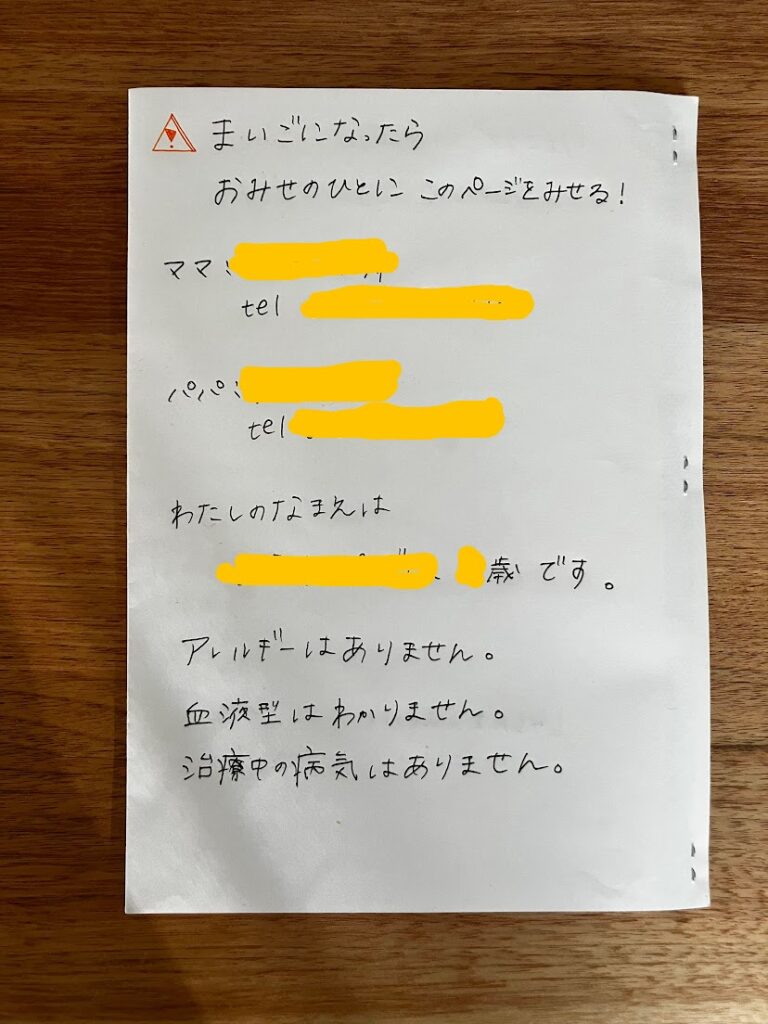 まいごになったら
おみせのひとに このページをみせる!
ママ:
tel
パパ:
tel
わたしのなまえは
歳です。
アレルギーはありません。
血液型はわかりません。
治療中の病気はありません。